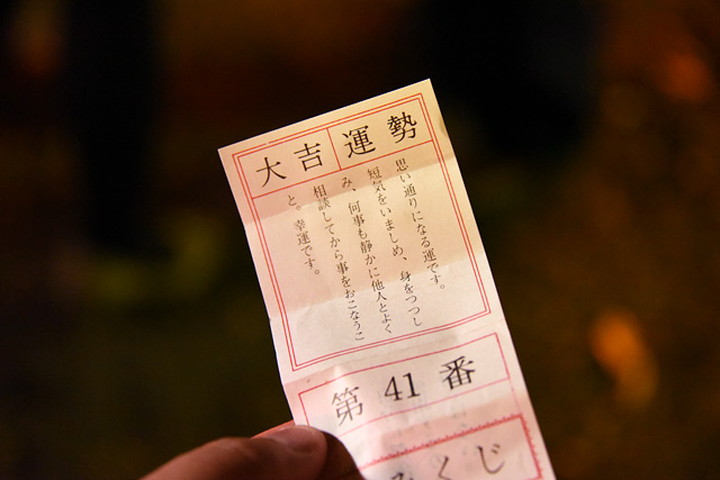 運勢
大吉
思い通りになる運です。
短気をいましめ、身をつつし
み、何事も静かに他人とよく
相談してから事をおこなうこ
と。幸運です。
第41番
みくじ